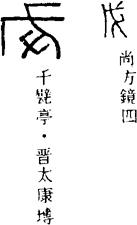 尚方鏡四
千甓亭·晋太康塼